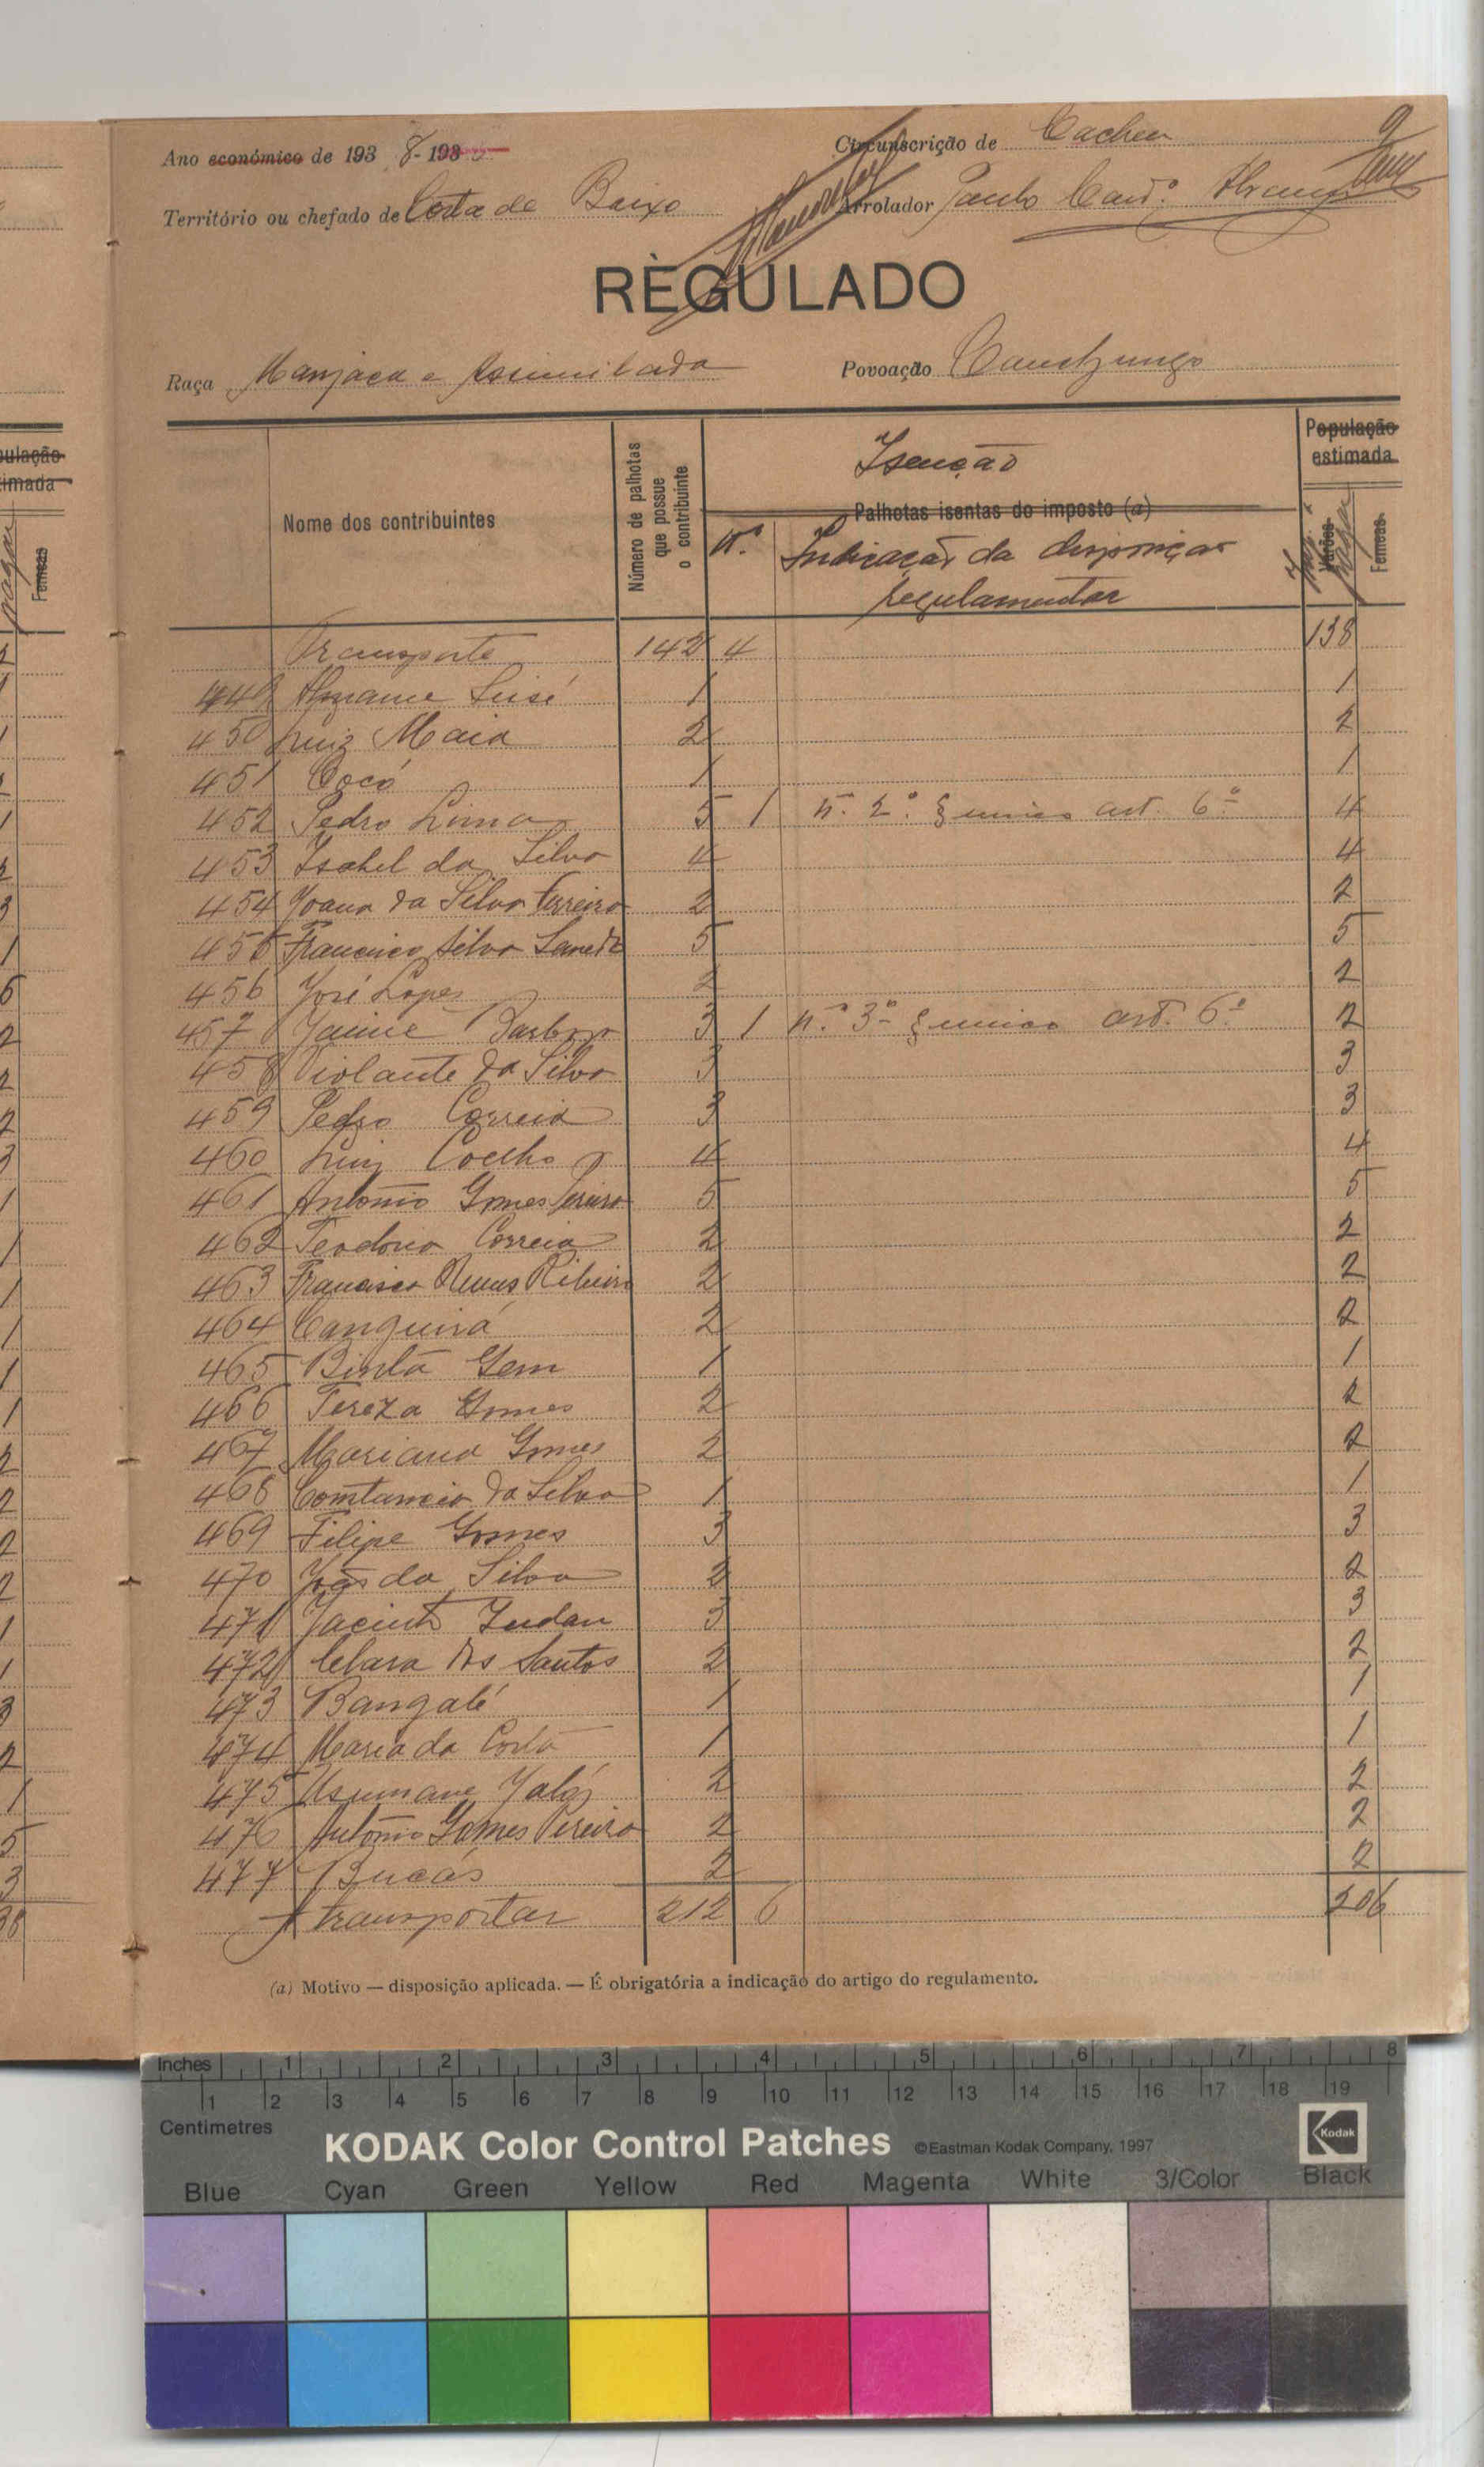 Ano económico de 193 8-193
Circunscrição de Cacheu
9
Território ou chefado de Costa de Baixo
Arrolador Paulo
REGULADO
Raça Manjaca e Assimilada
Povoação Canchungo
Nome dos contribuintes
Número de palhotas que possue o contribuinte
Isenção
Palhotas isentas do imposto (a)
N.º Indicação da disposição regulamentar
População estimada
Varões
Fêmeas
pagar
Transporte 142 4 138
449 1 1
450 Luiz Maia 2 2
451 Cocó 1 1
452 Pedro Lima 5 1 n.º 2.º § unico art. 6.º 4
453 Isabel da Silva 4 4
454 Joana da Silva Ferreira 2 2
455 Francisco Silva 5 5
456 José Lopes 2 2
457 Jaime Barbosa 3 1 n.º 3.º § unico art. 6.º 2
458 Violante da Silva 3 3
459 Pedro Correia 3 3
460 Luiz Coelho 4 4
461 António Gomes Pereira 5 5
462 Teodoro Correia 2 2
463 Francisco Nunes Ribeiro 2 2
464 Canquirá 2 2
465 Bintà Gem 1 1
466 Tereza Gomes 2 2
467 Mariana Gomes 2 2
468 da Silva 1 1
469 Filipe Gomes 3 3
470 João da Silva 2 2
471 Jacinto 3 3
472 Clara dos Santos 2 2
473 Bangalé 1 1
474 Maria da Costa 1 1
475 Usumane Jaló 2 2
476 António Gomes Pereira 2 2
477 Bucás 2 2
A transportar 212 6 206
(a) Motivo — disposição aplicada. — É obrigatória a indicação do artigo do regulamento.
Inches 1 2 3 4 5 6 7 8
1 2 3 4 5 6 7 8 9 10 11 12 13 14 15 16 17 18 19
Centimetres
KODAK Color Control Patches ©Eastman Kodak Company, 1997 Kodak
Blue Cyan Green Yellow Red Magenta White 3/Color Black